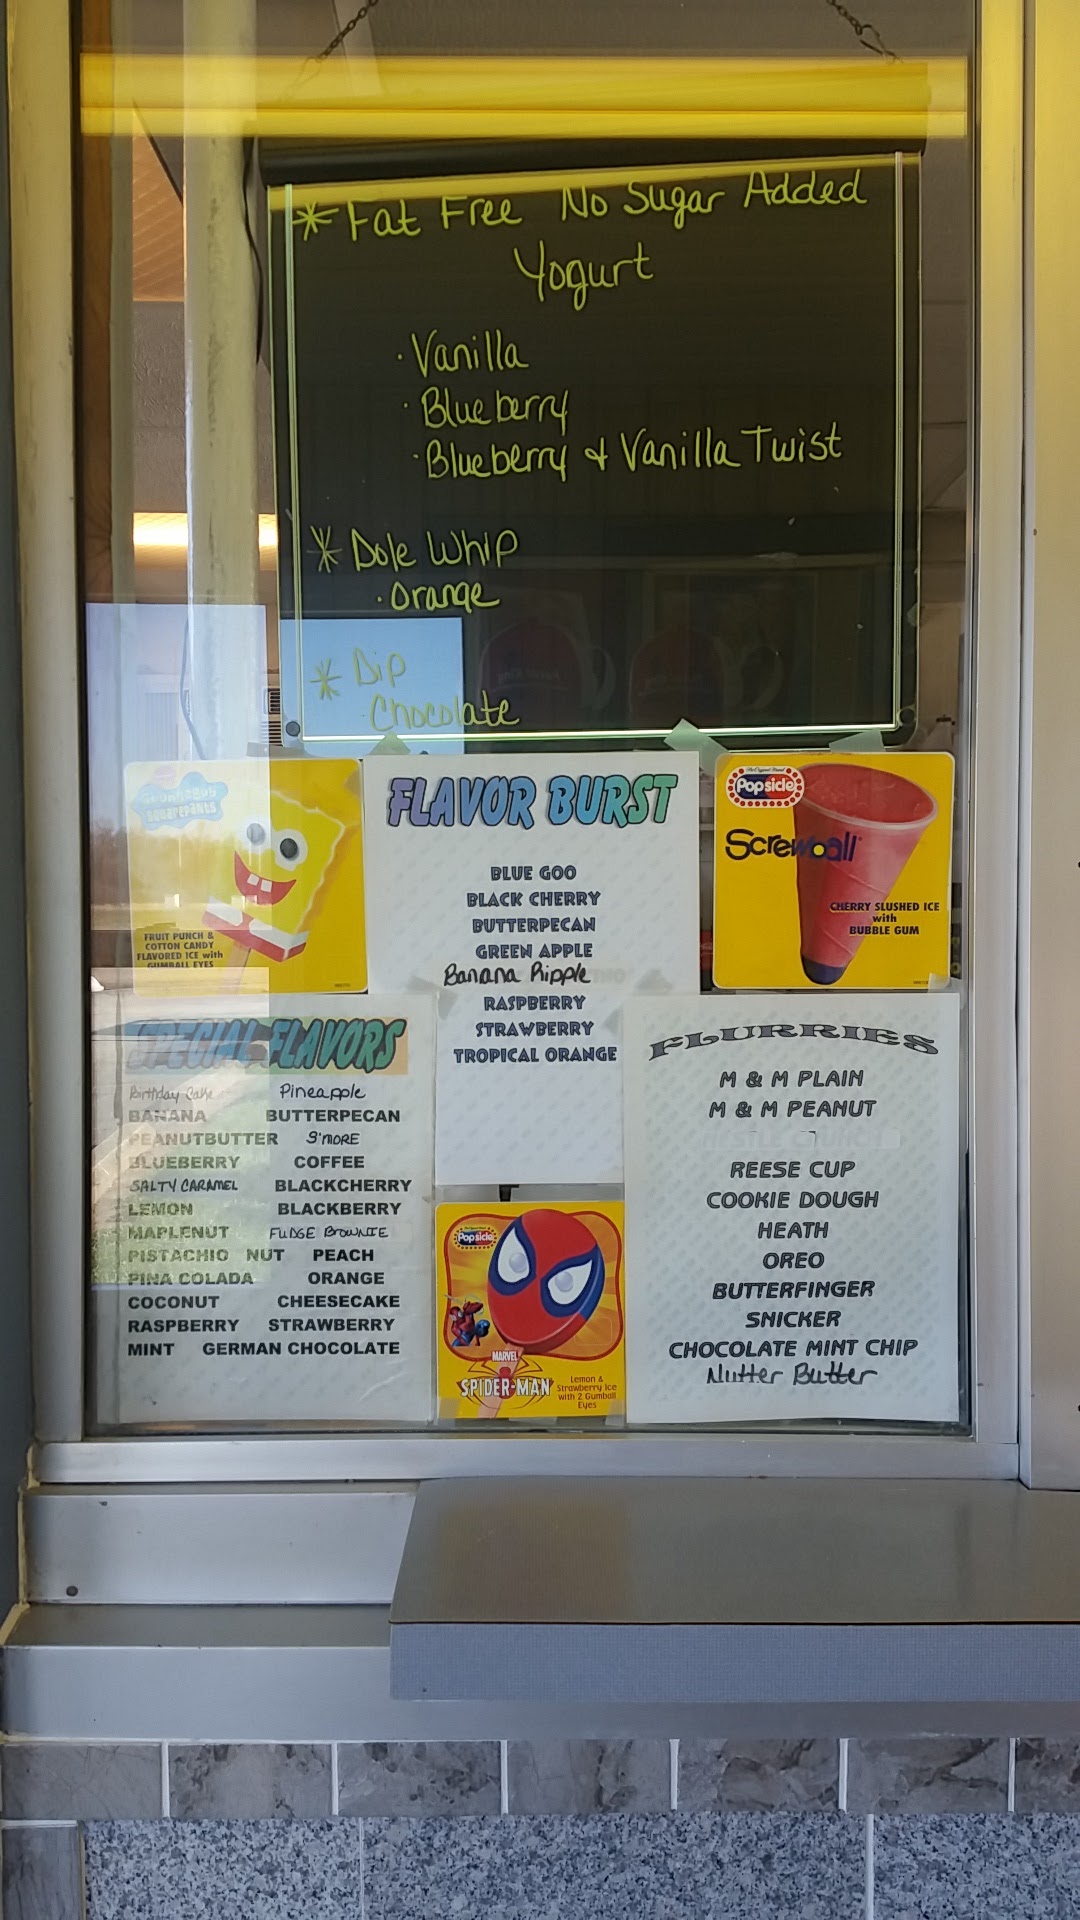 * Fat Free No Sugar Added
Yogurt
· Vanilla
· Blueberry
· Blueberry & Vanilla Twist
* Dole Whip
· Orange
* Dip
· Chocolate
SpongeBob
SquarePants
FRUIT PUNCH &
COTTON CANDY
FLAVORED ICE with
GUMBALL EYES
FLAVOR BURST
BLUE GOO
BLACK CHERRY
BUTTERPECAN
GREEN APPLE
Banana Ripple
RASPBERRY
STRAWBERRY
TROPICAL ORANGE
Popsicle
Screwball
CHERRY SLUSHED ICE
with
BUBBLE GUM
SPECIAL FLAVORS
Birthday Cake Pineapple
BANANA BUTTERPECAN
PEANUTBUTTER S'MORE
BLUEBERRY COFFEE
SALTY CARAMEL BLACKCHERRY
LEMON BLACKBERRY
MAPLENUT FUDGE BROWNIE
PISTACHIO NUT PEACH
PINA COLADA ORANGE
COCONUT CHEESECAKE
RASPBERRY STRAWBERRY
MINT GERMAN CHOCOLATE
Popsicle
MARVEL
SPIDER-MAN
Lemon &
Strawberry Ice
with 2 Gumball
Eyes
FLURRIES
M & M PLAIN
M & M PEANUT
REESE CUP
COOKIE DOUGH
HEATH
OREO
BUTTERFINGER
SNICKER
CHOCOLATE MINT CHIP
Nutter Butter